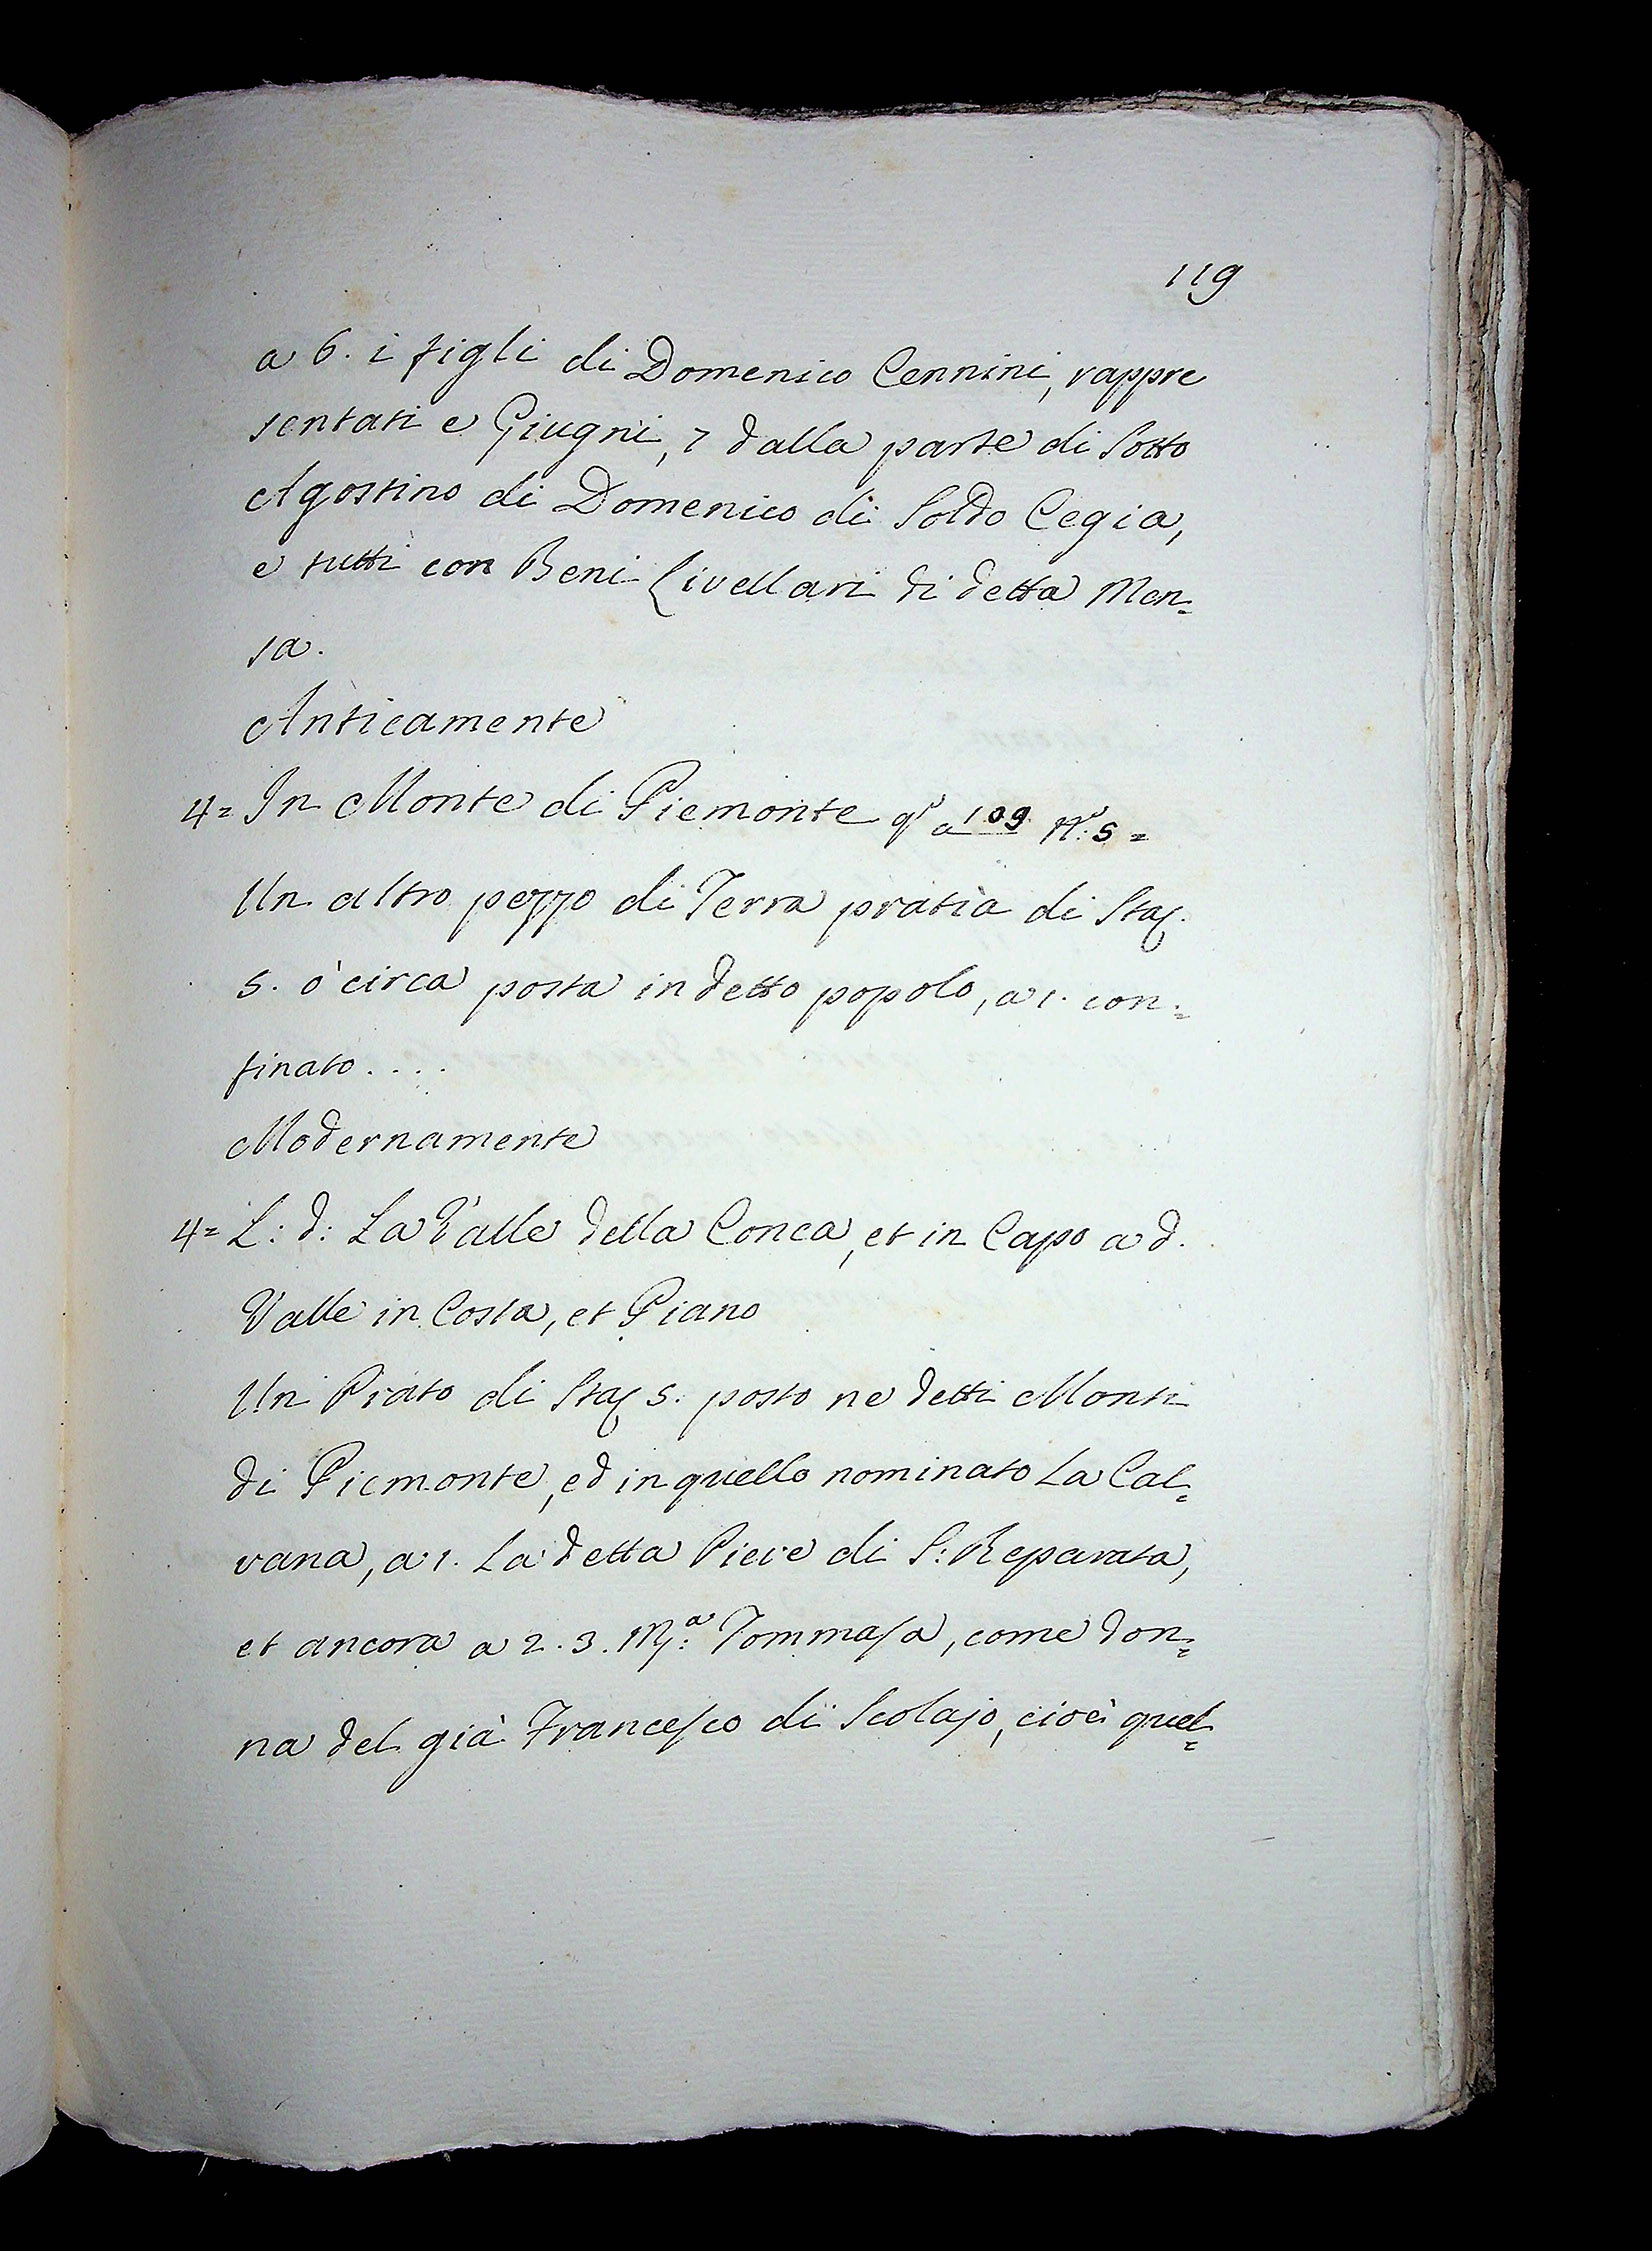 119
a 6. i figli di Domenico Cennini, rappre
sentati e Giugni, 7 dalla parte di Sotto
Agostino di Domenico di Soldo Cegia,
e tutti con Beni Livellari di detta Men=
sa.
Anticamente
4= In Monte di Piemonte qº a 109 Nº: 5=
Un altro pezzo di Terra pratia di Staj.
5. ò circa posta in detto popolo, a 1. con=
finato....
Modernamente
4= L: d: La Valle della Conca, et in Capo a d.
Valle in Costa, et Piano
Un Prato di Staj 5. posto ne detti Monti
di Piemonte, ed in quello nominato La Cal=
vana, a 1. La detta Pieve di S: Reparata,
et ancora a 2. 3. M:ª Tommasa, come don=
na del già Francesco di Scolajo, cioè quel=